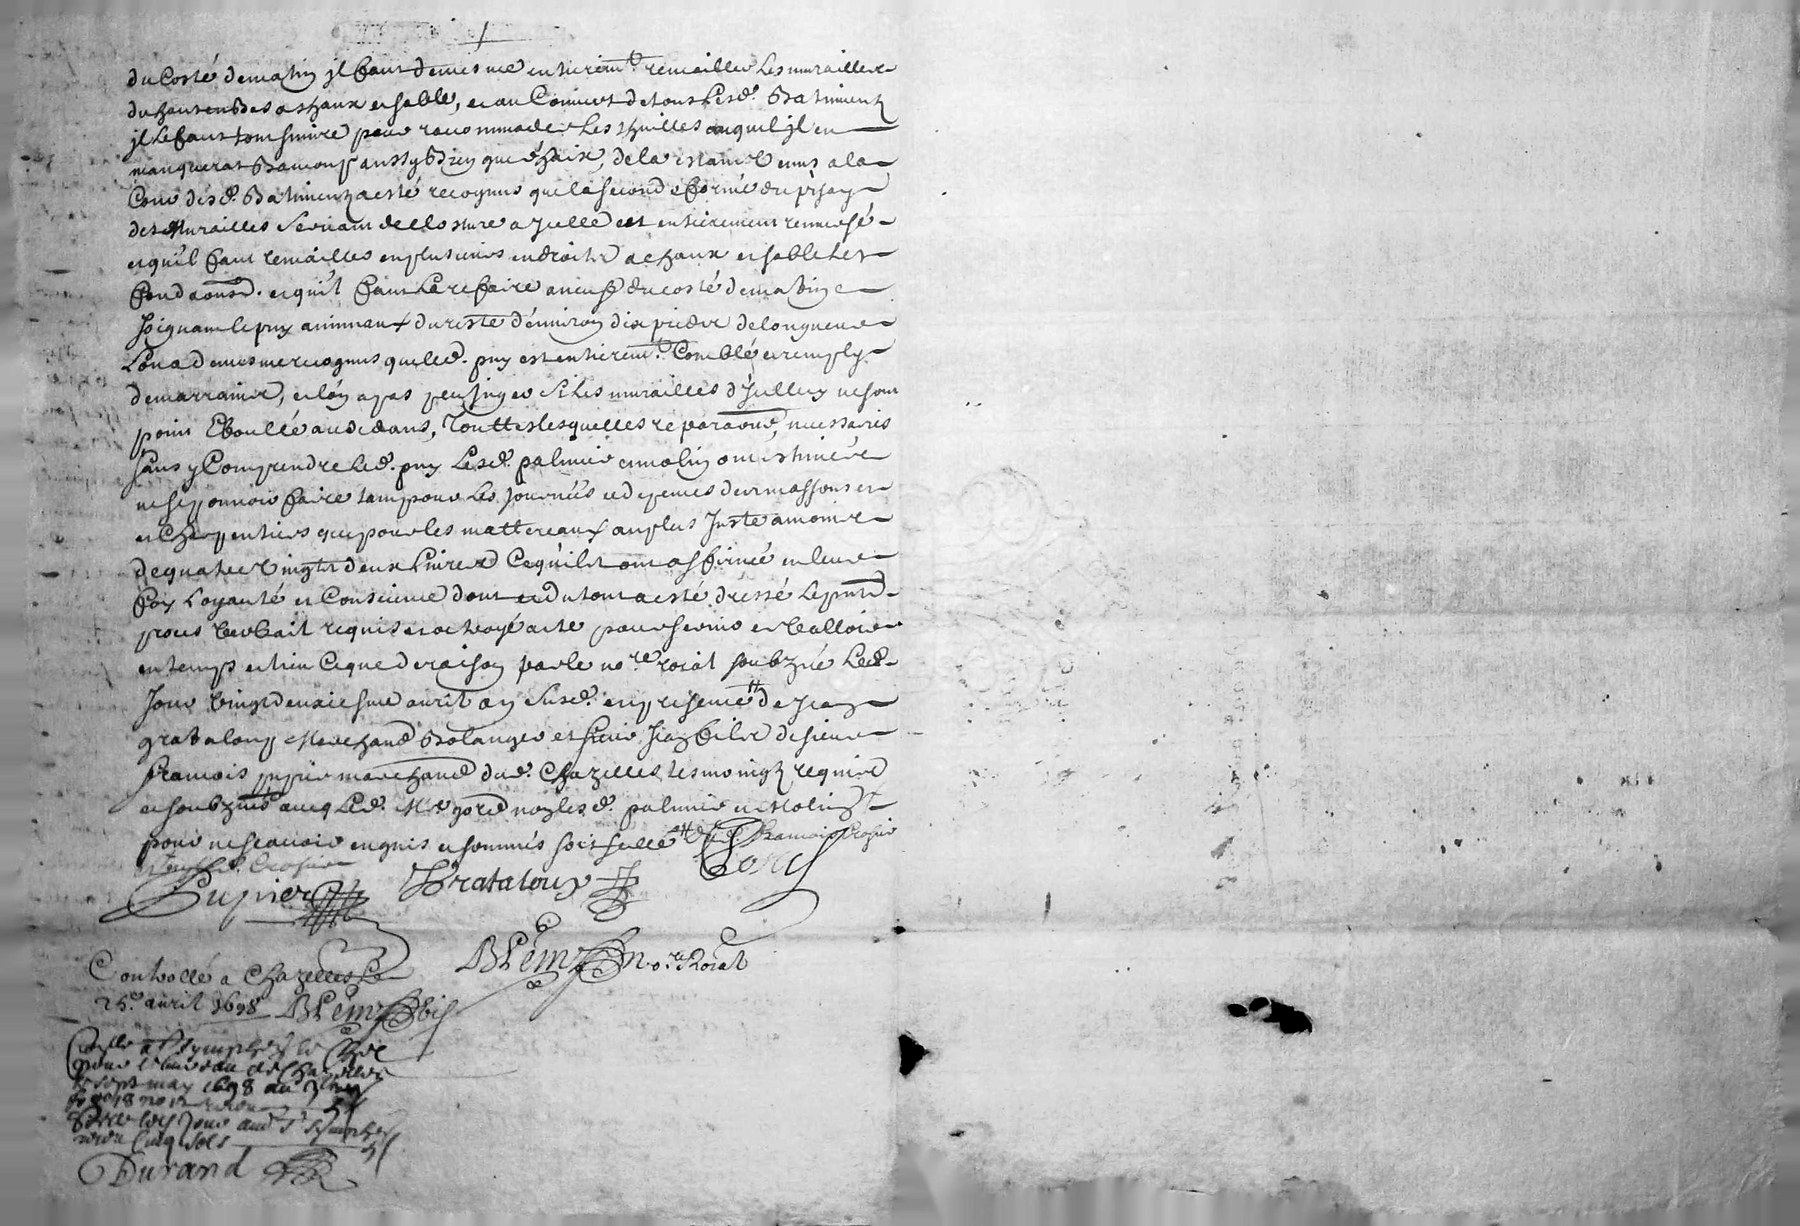 du costé de matin il faut de mesme entierem.t remailler les murailles
du haut en bas a chaux et sable, et au couvert de tous lesd. batiments
il le faut tout suivre pour racommoder les thuilles auquel il en
manquerat baucoup aussy bien que chaix, de la estant venus a la
cour desd. batiments a esté recognus que la seconde forme du pisay
des murailles servant de closture a icelle est entierement renversé
et qu'il faut remailles en plusieurs endroits a chaux et sable les
fondaons. et qu'il faut la refaire a neuf du costé de matin
joignant le puy animaux du reste d'environ dix pieds de longueur
l'on a de mesme recognus que led. puy est entierem.t comblé et remply
de marrains, et l'on a pas peu juger si les murailles d'icelluy ne sont
point eboullé au dedans, touttes lesquelles reparaons necessaires
sans y comprendre led. puy lesd. palmier et molin ont estimées
ne se pouvoir faire tant pour les journées et depences des massons et
et charpentiers que pour les mattereaux au plus juste a moins
de quatre vingts deux livres ce qu'ils ont affirmé en leur
foy loyauté et conscience dont et du tout a esté dressé le pnt
proces verbail requis et octroyé acte pour servir et valloir
en temps et lieu ce que de raison par le no.re roial soubzné led.
jour vingt deuxiesme avril an susd. en presence de Jean
grataloup marchand bolanger et sieur Jean fils de sieur
francois pupier marchand dud. Chazelles tesmoings requis
et soubznés avec led. M.e gord non lesd. palmier et molin
pour ne scavoir enquis et sommés soit scellé
Pupier Grataloup
BPein n.re Roial
Controllé a Chazelles le
25.e avril 1698 BPein
pour le bureau de Chazelles
le sept may 1698 au
cinq sols
Durand